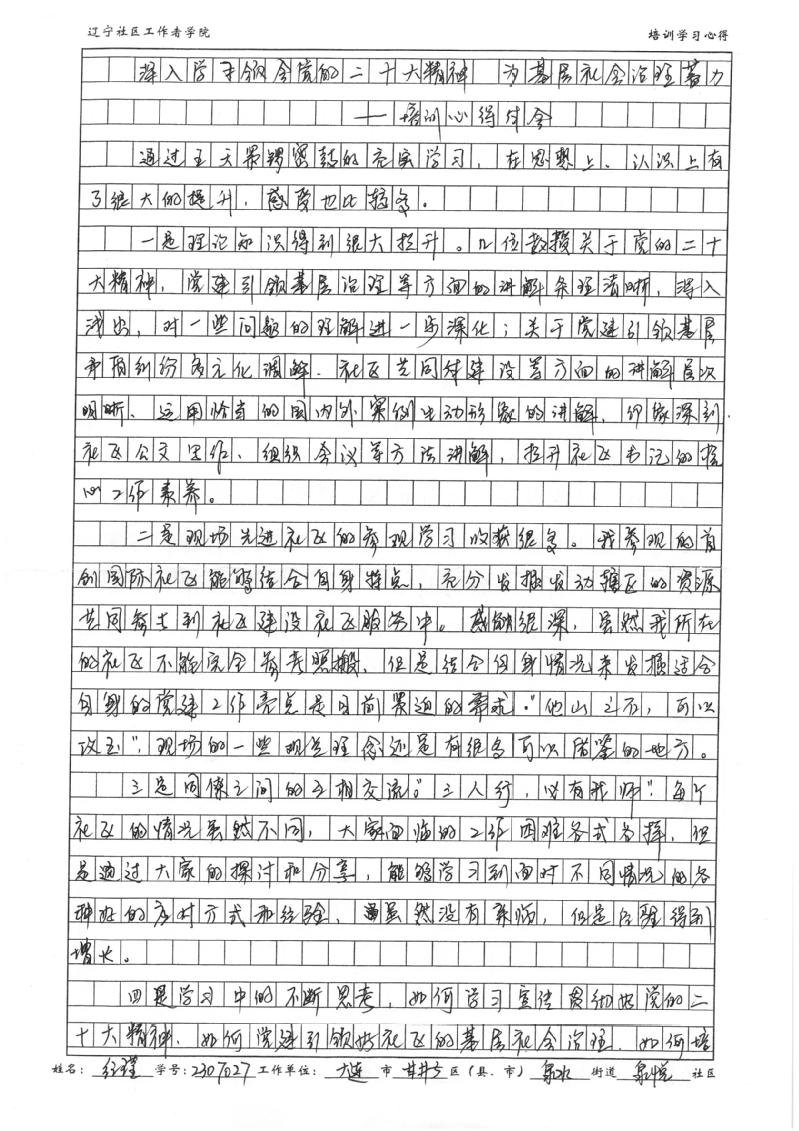 辽宁社区工作者学院 培训学习心得
深入学习领会党的二十大精神 为基层社会治理蓄力
——培训心得体会
通过五天紧锣密鼓的充实学习，在思想上、认识上有
了很大的提升，感受也比较多。
一是理论知识得到很大提升。几位教授关于党的二十
大精神，党建引领基层治理等方面的讲解条理清晰，深入
浅出，对一些问题的理解进一步深化；关于党建引领基层
矛盾纠纷多元化调解、社区共同体建设等方面的讲解层次
明晰、运用恰当的国内外案例生动形象的讲解，印象深刻.
社区公文写作、组织会议等方法讲解，提升社区书记的核
心工作素养。
二是现场先进社区的参观学习收获很多。我参观的首
创国际社区能够结合自身特点，充分发掘发动辖区的资源
共同参与到社区建设社区服务中。感触很深，虽然我所在
的社区不能完全参考照搬，但是结合自身情况来发掘适合
自身的党建工作亮点是目前紧迫的需求。“他山之石，可以
攻玉”，现场的一些观点理念还是有很多可以借鉴的地方。
三是同僚之间的互相交流。“三人行，必有我师”，每个
社区的情况虽然不同，大家面临的工作困难各式各样，但
是通过大家的探讨和分享，能够学习到面对不同情况的各
种好的应对方式和经验，虽然没有亲临，但是经验得到
增长。
四是学习中的不断思考，如何学习宣传贯彻好党的二
十大精神、如何党建引领好社区的基层社会治理、如何培
姓名： 学号：2307027 工作单位：大连 市 甘井子 区（县、市） 泉水 街道 泉悦 社区